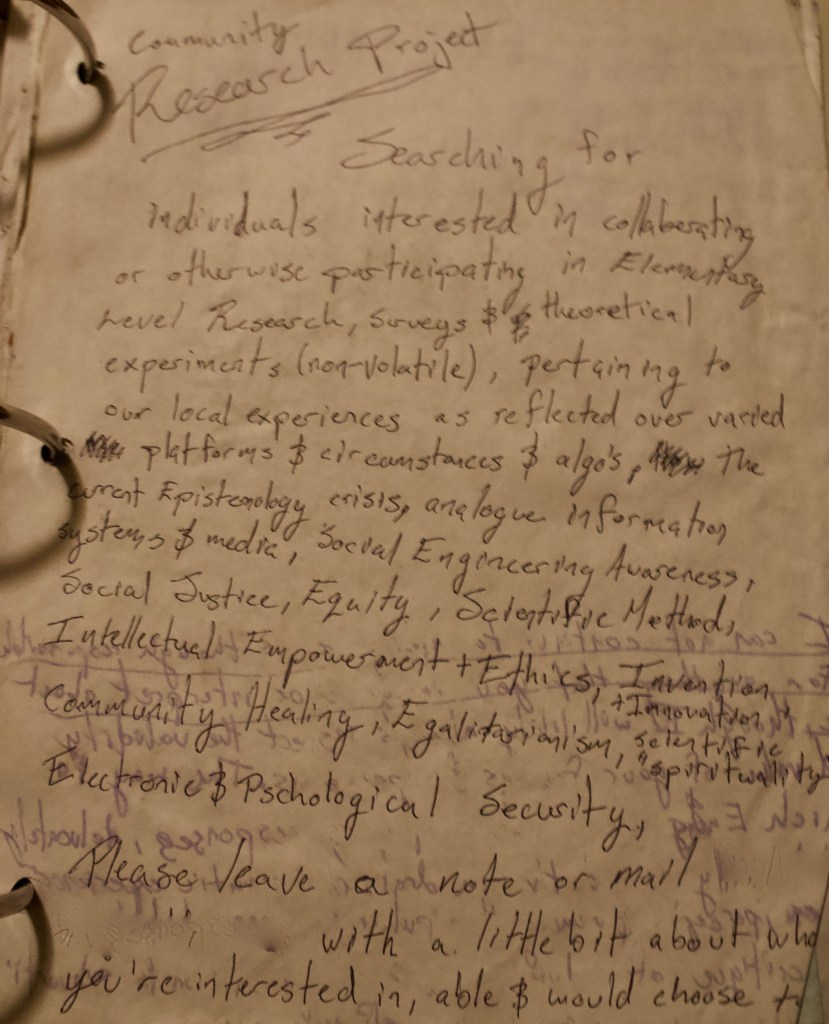 Community
Research Project
Searching for
individuals interested in collaberating
or otherwise participating in Elementary
Level Research, surveys & theoretical
experiments (non-volatile), pertaining to
our local experiences as reflected over varied
platforms & circumstances & algo's, the
current Epistemology crisis, analogue information
systems & media, Social Engineering Awareness,
Social Justice, Equity, Scientific Method,
Intellectual Empowerment + Ethics, Invention
+ Innovation,
Community Healing, Egalitarianism, scientific
"spirituality"
Electronic & Pschological Security,
Please leave a note or mail
with a little bit about who
you're interested in, able & would choose